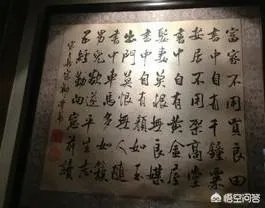 富家不用買良田
書中自有千鍾粟
安居不用架高堂
書中自有黃金屋
娶妻莫恨無良媒
書中有女顏如玉
出門莫恨無人隨
書中車馬多如簇
男兒欲遂平生志
五經勤向窗前讀
悟空问答